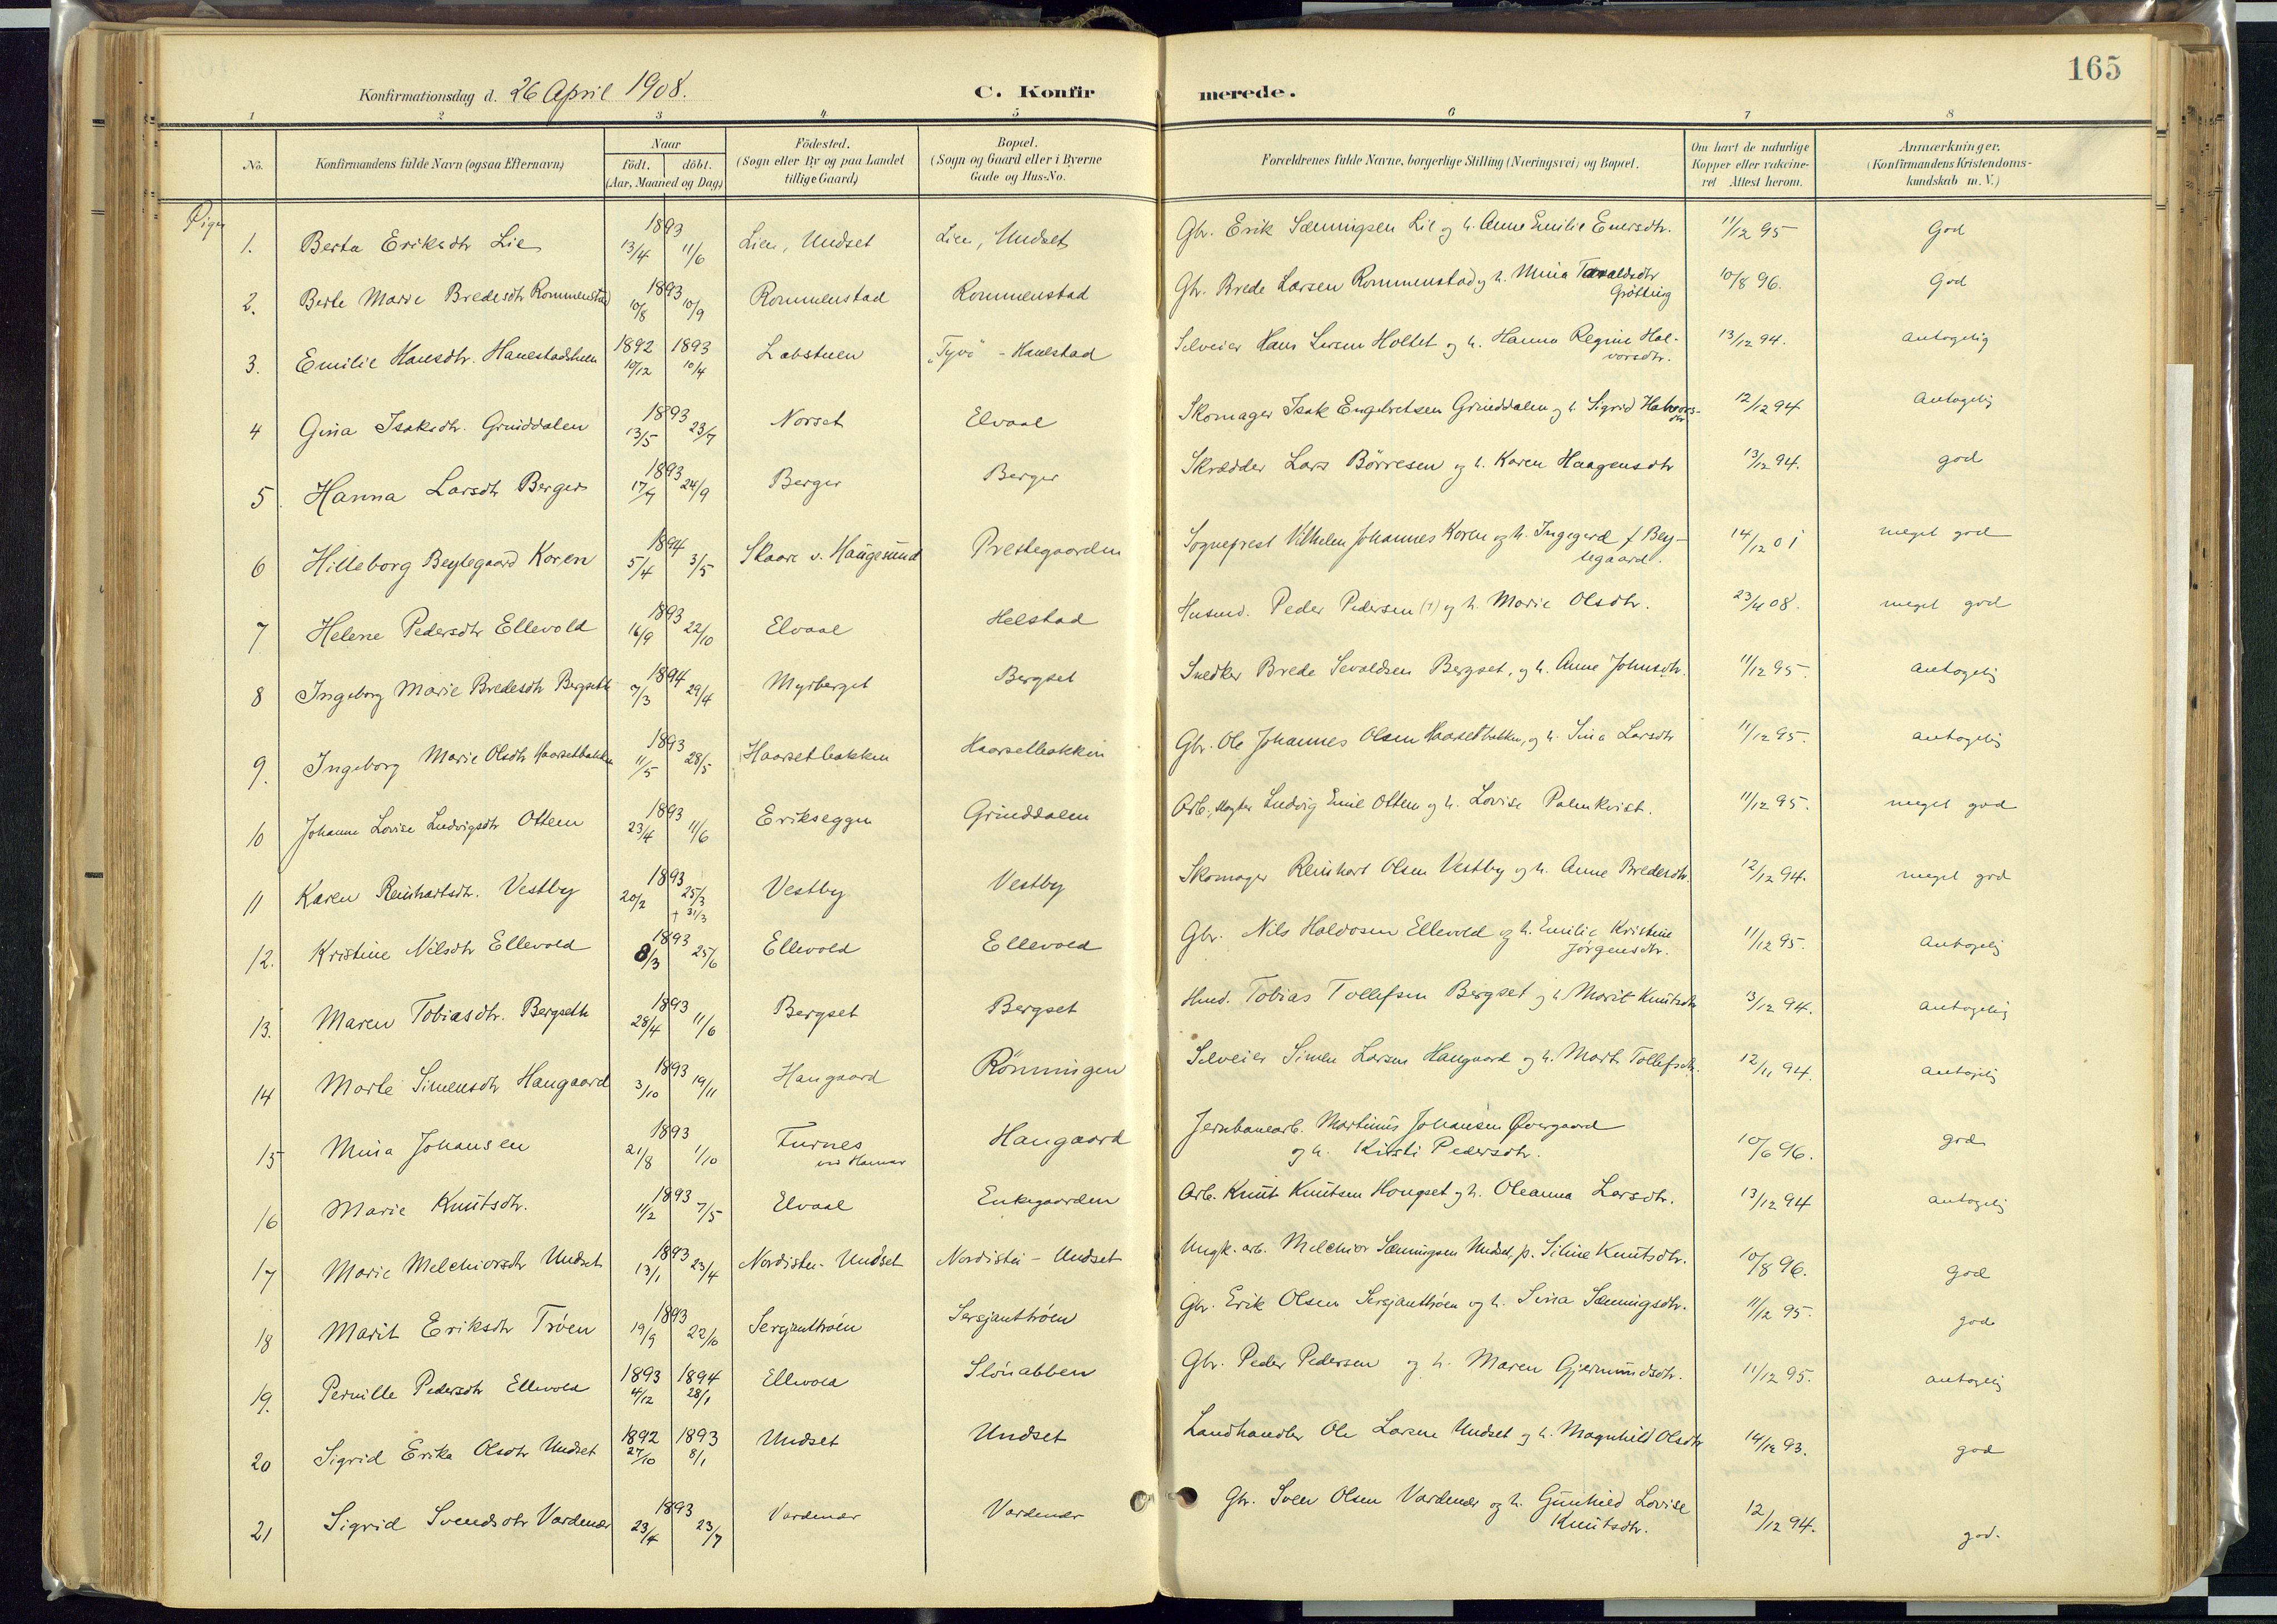 165
Konfirmationsdag d. 26 April 1908.
C. Konfirmerede.
1 2 3 4 5 6 7 8
No. Konfirmandens fulde Navn (ogsaa Efternavn) Naar født. døbt. (Aar, Maaned og Dag) Födested. (Sogn eller By og paa Landet tillige Gaard) Bopæl. (Sogn og Gaard eller i Byerne Gade og Hus-No. Forældrenes fulde Navne, borgerlige Stilling (Næringsvei) og Bopæl. Om havt de naturlige Kopper eller vakcineret Attest herom. Anmærkninger. (Konfirmandens Kristendomskundskab m. V.)
Piger
1. Berta Eriksdtr Lie 1893 13/4 11/6 Lien, Undset Lien, Undset Gbr. Erik Sæmingsen Lie og h. Anne Emilie Enersdtr. 11/12 95 God
2. Berte Marie Bredesdtr Rommenstad 1893 10/8 10/9 Rommenstad Rommenstad Gbr. Brede Larsen Rommenstad og h. Mina Tavaldsdtr Grötting 10/8 96. God
3. Emilie Hansdtr. Hanestadshulen 1892 10/12 1893 10/4 Labstuen "Tyvi" - Hanestad Selveier Hans Larsen Holtet og h. Hanna Regine Halvorsdtr. 13/12 94. antagelig
4 Gina Isaksdtr. Grinddalen 1893 13/5 23/7 Norset Elvaal Skomager Isak Engebretsen Grinddalen og h. Sigrid Halvorsdtr. 12/12 94 Antagelig
5. Hanna Larsdtr Berger 1893 17/7 24/9 Berger Berger Skrædder Lars Børresen og h. Karen Haagensdtr 13/12 94. god
6 Hilleborg Beylegaard Koren 1894 5/4 3/5 Skaare v. Haugesund Prestegaarden Sogneprest Vilhelm Johannes Koren og h. Ingegerd f Beylegaard. 14/12 01 meget god
7 Helene Pedersdtr Ellevold 1893 16/9 22/10 Elvaal Helstad Husmd. Peder Pedersen (†) og h. Marie Olsdtr. 23/4 08. meget god
8 Ingeborg Marie Bredesdtr Bergseth 1894 7/3 29/4 Myrberget Bergset Snedker Brede Sevaldsen Bergset, og h. Anne Johnsdtr. 11/12 95. antagelig
9. Ingeborg Marie Olsdtr Haarsetbakken 1893 11/5 28/5 Haarsetbakken Haarsetbakken Gbr. Ole Johannes Olsen Haarsetbakken, og h. Sina Larsdtr 11/12 95. antagelig
10 Johanne Lovise Ludvigsdtr Ottem 1893 23/4 11/6 Erikseggen Grinddalen Arb., Ludvig Emil Ottem og h. Lovise Palmkvist. 11/12 95. meget god
11 Karen Reinhartsdtr. Vestby 1893 20/2 25/3 † 31/3 Vestby Vestby Skomager Reinhart Olsen Vestby og h. Anne Bredesdtr. 12/12 94. meget god
12. Kristine Nilsdtr Ellevold 1893 8/3 25/6 Ellevold Ellevold Gbr. Nils Haldosen Ellevold og h. Emilie Kristine Jørgensdtr. 11/12 95. antagelig
13. Maren Tobiasdtr. Bergseth 1893 28/4 11/6 Bergset Bergset Hmd. Tobias Tollefsen Bergset og h. Marit Knutsdtr 13/12 94. antagelig
14 Marte Simensdtr Haugaard 1893 3/10 19/11 Haugaard Rönningen Selveier Simen Larsen Haugaard og h. Marte Tollefsdtr. 12/11 94. antagelig
15 Mina Johansen 1893 21/8 1/10 Furnes ved Hamar Haugaard Jernbanearb. Martinus Johansen Øvergaard og h. Kirsti Pedersdtr. 10/6 96. god
16 Marie Knutsdtr. 1893 11/2 7/5 Elvaal Enkegaarden Arb. Knut Knutsen Hougset og h. Oleanna Larsdtr. 13/12 94 antagelig
17 Marie Melchiorsdtr Undset 1893 13/1 23/4 Nordistu - Undset Nordistu - Undset Ungk. arb. Melchior Sæmingsen Undset, p. Siline Knutsdtr. 10/8 96. god
18 Marit Eriksdtr Tröen 1893 19/9 22/10 Sersjanttröen Sersjanttröen Gbr. Erik Olsen Sersjanttröen og h. Sina Sæmingsdtr. 11/12 95. god
19. Pernille Pedersdtr Ellevold 1893 4/12 1894 28/1 Ellevold Slönabben Gbr. Peder Pedersen og h. Maren Gjermundsdtr. 11/12 95. antagelig
20 Sigrid Erika Olsdtr Undset 1892 27/10 1893 8/1 Undset Undset Landhandler Ole Larsen Undset og h. Magnhild Olsdtr 14/12 93. god
21 Sigrid Svendsdtr Vardenær 1893 23/4 23/7 Vardenær Vardenær Gbr. Sven Olsen Vardenær og h. Gunhild Lovise Knutsdtr. 12/12 94. god.